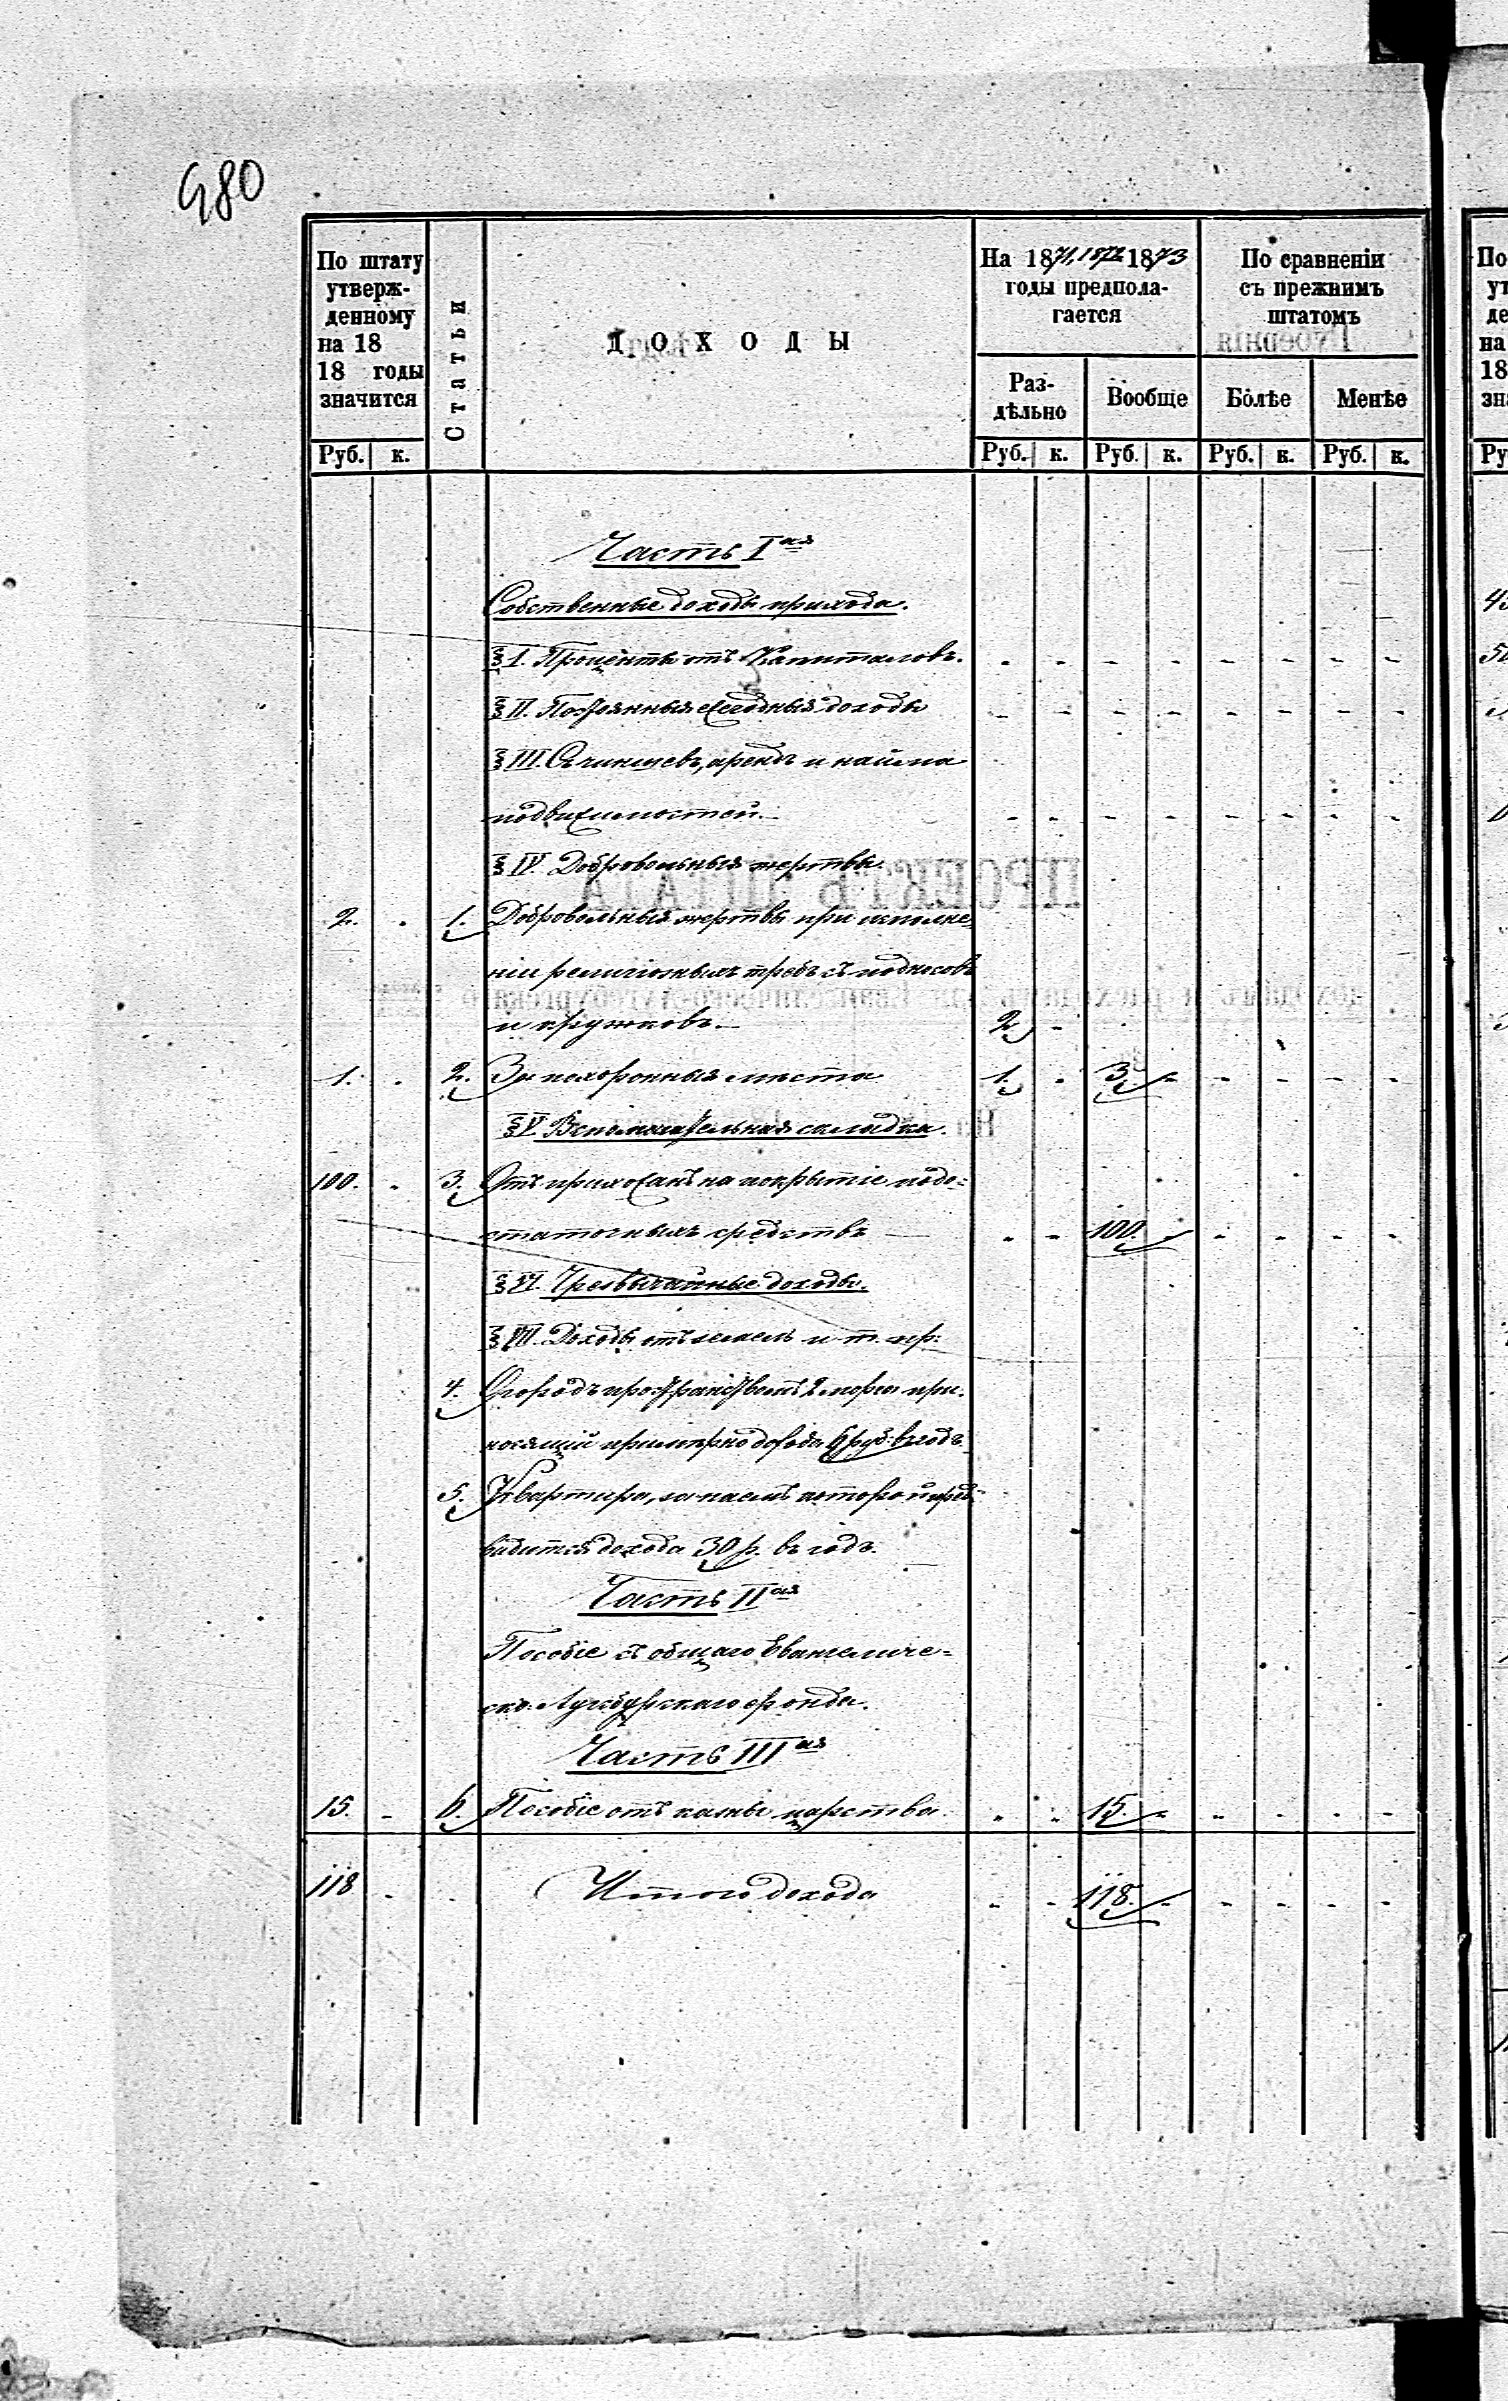 480
По штату утверж-денному на 18 18 годы значится
Статьи
ДОХОДЫ
На 1871, 1872 1873 годы предпола-гается
По сравненіи съ прежнимъ штатомъ
Раз-дѣльно
Вообще
Болѣе
Менѣе
Руб. к.
Руб. к. Руб. к. Руб. к. Руб. к.
Часть I ая
Собственные доходы прихода.
§ I. Проценты отъ Капиталовъ. - - - - - - - -
§ II. Постоянныя ежегодныя доходы - - - - - - - -
§ III. Съ чиншевъ, арендъ и найма
подвижимостей. - - - - - - - -
§ IV. Добровольныя жертвы.
2. - 1. Добровольныя жертвы при исполне-
ніи религіозныхъ требъ съ подносовъ
и кружковъ. 2 -
1. - 2. За похоронныя мѣста 1. - 3. - - - - -
§ V. Вспомогательная складка.
100. - 3. Отъ прихожанъ на покрытіе недо=
статочныхъ средствъ - - 100. - - - - -
§ VI. Чрезвычайные доходы.
§ VII. Доходы отъ земель и т. пр:
4. Огородъ пространствомъ 2 морга при-
носящій примѣрно дохода 6 руб: въ годъ.
5. Квартира, за наемъ которой
видится дохода 30 р. въ годъ.
Часть II ая
Пособіе съ общаго Евангеличе=
ско-Аугсбургскаго фонда.
Часть III ая
15. - 6. Пособіе отъ казны царства. - - 15. - - - - -
118 - - Итого дохода - - 118. - - - - -